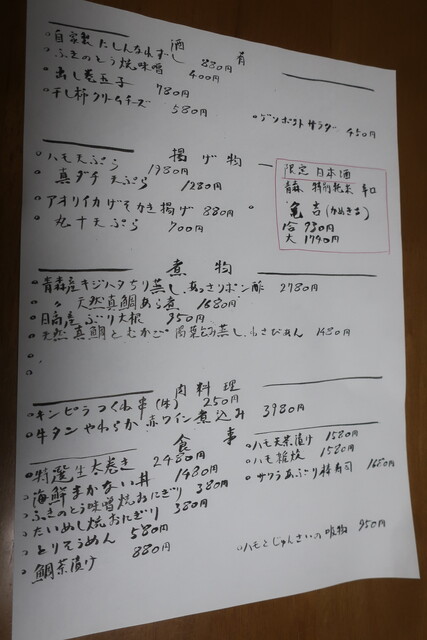 酒肴
自家製 にしんなれずし 880円
ふきのとう焼味噌 400円
出し巻玉子 780円
干し柿クリームチーズ 580円
サラダ 450円
揚げ物
ハモ天ぷら 1980円
真ダチ天ぷら 1280円
アオリイカげそかき揚げ 880円
丸十天ぷら 700円
限定日本酒
青森 特別純米 辛口
亀吉(かめきち)
合 930円
大 1740円
煮物
青森産キジハタちり蒸し、あっさりポン酢 2780円
〃 天然真鯛あら煮 1680円
日高産 ぶり大根 950円
天然真鯛とむかご 蒸し、わさびあん 1480円
肉料理
キンピラつくね串(1本) 250円
牛タンやわらか赤ワイン煮込み 3980円
食事
特選生太巻き 2480円
海鮮まかない丼 1480円
ふきのとう味噌焼おにぎり 380円
たいめし焼おにぎり 380円
とりそうめん 580円
鯛茶漬け 880円
ハモ天茶漬け 1580円
ハモ 1580円
サワラあぶり棒寿司 1680円
ハモとじゅんさいの吸物 950円